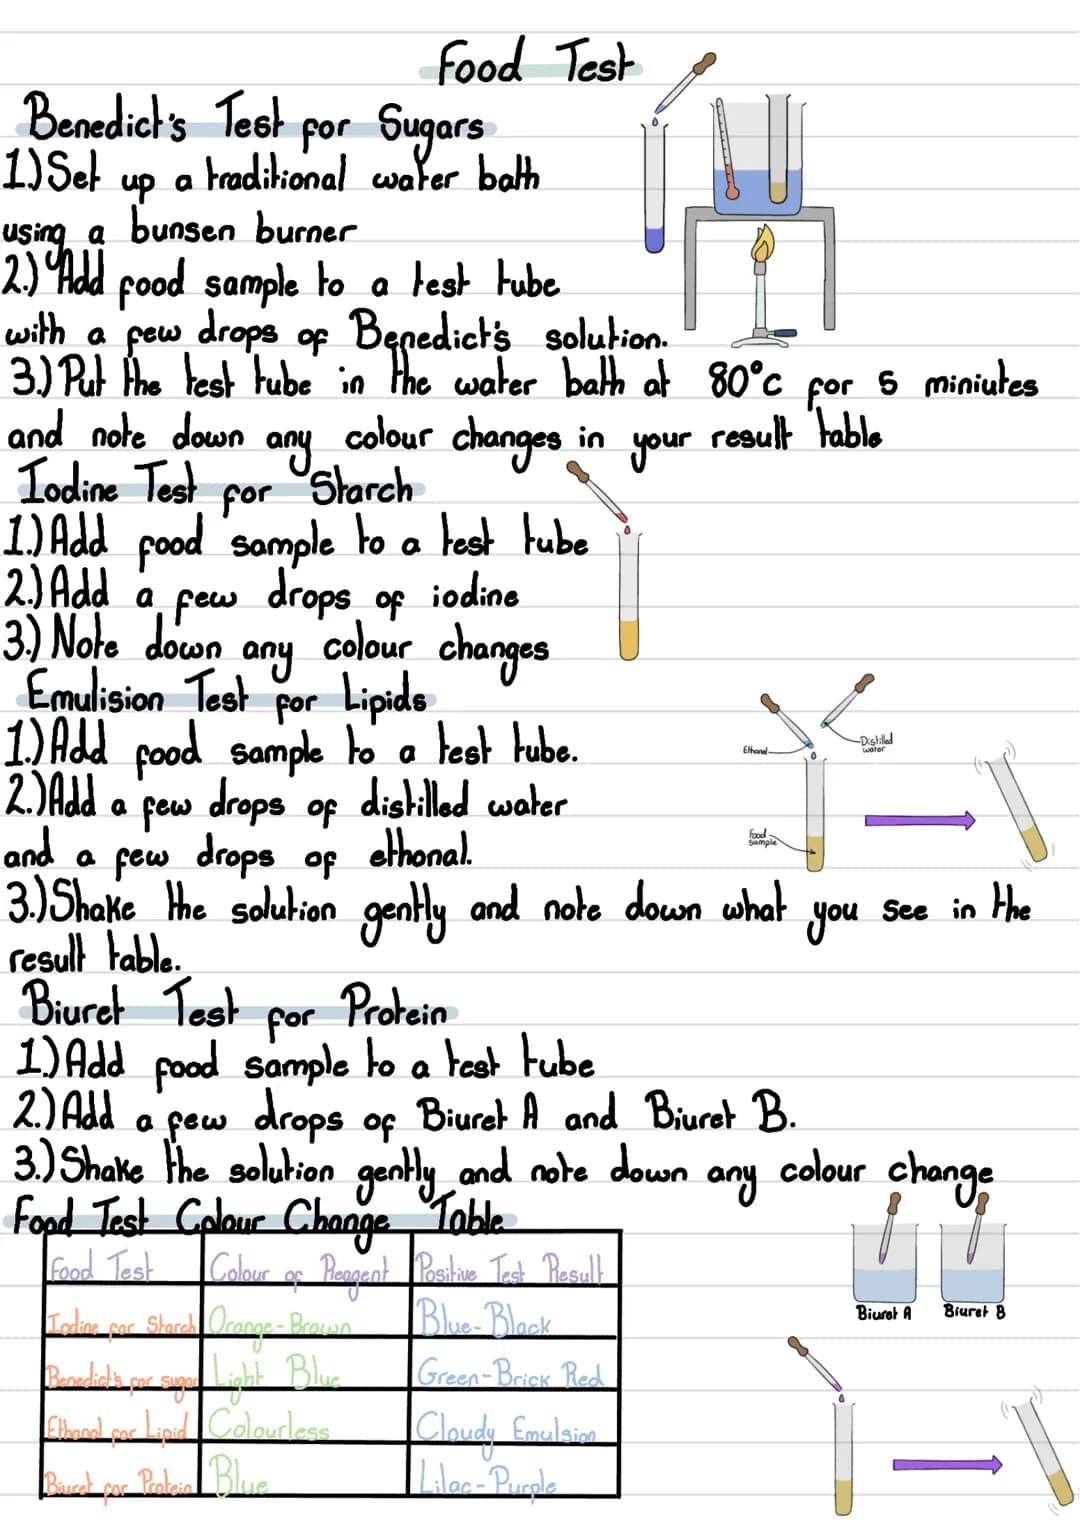 Food Test
Benedict's Test for Sugars
1.) Set up a traditional water bath
using a bunsen burner
2.) Add food sample to a test tube
with a few drops of Benedict's solution.
3.) Put the test tube in the water bath at 80°c for 5 miniutes
and note down any colour changes in your result table
Iodine Test for Starch
1.) Add food sample to a test tube
2.) Add a few drops of iodine
3.) Note down any colour changes
Emulision Test for Lipids
1.) Add food sample to a test tube.
2.) Add a few drops of distilled water
and a few drops of ethonal.
Ethanol
Distilled
water
Food
Sample
3.) Shake the solution gently and note down what you see in the
result table.
Biuret Test for Protein
1.) Add food sample to a test tube
2.) Add a few drops of Biuret A and Biuret B.
3.) Shake the solution gently and note down any colour change
Food Test Colour Change Table
Food Test Colour of Reagent Positive Test Result
Iodine for Starch Orange-Brown Blue-Black
Benedict's for sugar Light Blue Green-Brick Red
Ethanol for Lipid Colourless Cloudy Emulsion
Biuret for Protein Blue Lilac-Purple
Biuret A Biuret B